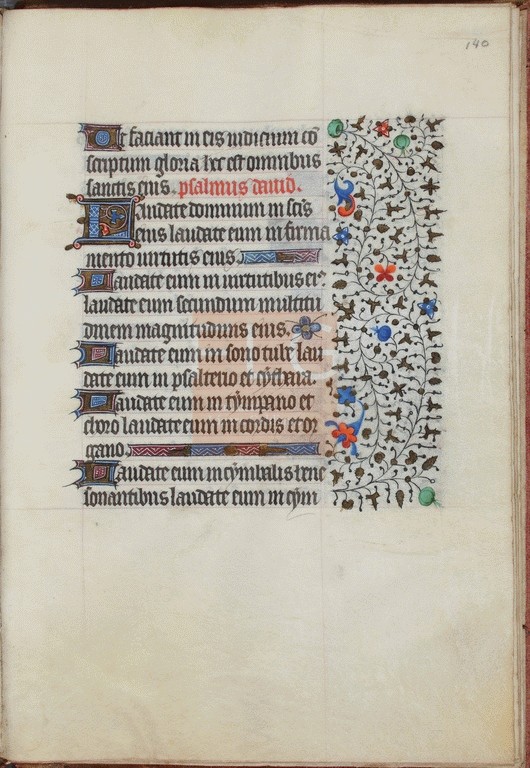 140
Ut faciant in eis iudicium cō
scriptum gloria hec est omnibus
sanctis eius. psalmus dauid.
Laudate dominum in scīs
eius laudate eum in firma
mento uirtutis eius.
Laudate eum in uirtutibus ei⁹
laudate eum secundum multitu
dinem magnitudinis eius.
Laudate eum in sono tube lau
date eum in psalterio et cythara.
Laudate eum in tympano et
choro laudate eum in cordis et or
gano.
Laudate eum in cymbalis bene
sonantibus laudate eum in cym